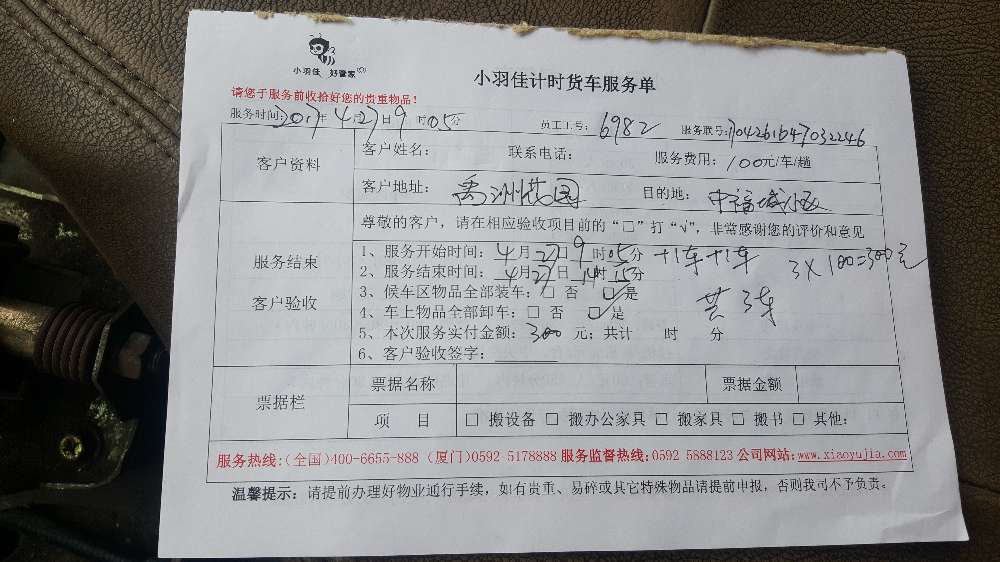 小羽佳 好管家
小羽佳计时货车服务单
请您于服务前收拾好您的贵重物品!
服务时间:2017年4月27日9时05分 员工工号:6982 服务联号:704261647032246
客户资料 客户姓名: 联系电话: 服务费用:100元/车/趟
客户地址:禹洲花园 目的地:中福城小区
尊敬的客户,请在相应验收项目前的“□”打“√”,非常感谢您的评价和意见
服务结束
客户验收
1、服务开始时间:4月27日9时05分 +1车+1车 3×100=300元
2、服务结束时间:4月27日14时15分
3、候车区物品全部装车:□ 否 ☑是 共3车
4、车上物品全部卸车:□ 否 ☑是
5、本次服务实付金额:300元;共计 时 分
6、客户验收签字:
票据栏 票据名称 票据金额
项 目 □ 搬设备 □ 搬办公家具 □ 搬家具 □ 搬书 □ 其他:
服务热线:(全国)400-6655-888 (厦门)0592 5178888 服务监督热线:0592 5888123 公司网站:www.xiaoyujia.com
温馨提示:请提前办理好物业通行手续,如有贵重、易碎或其它特殊物品请提前申报,否则我司不予负责。